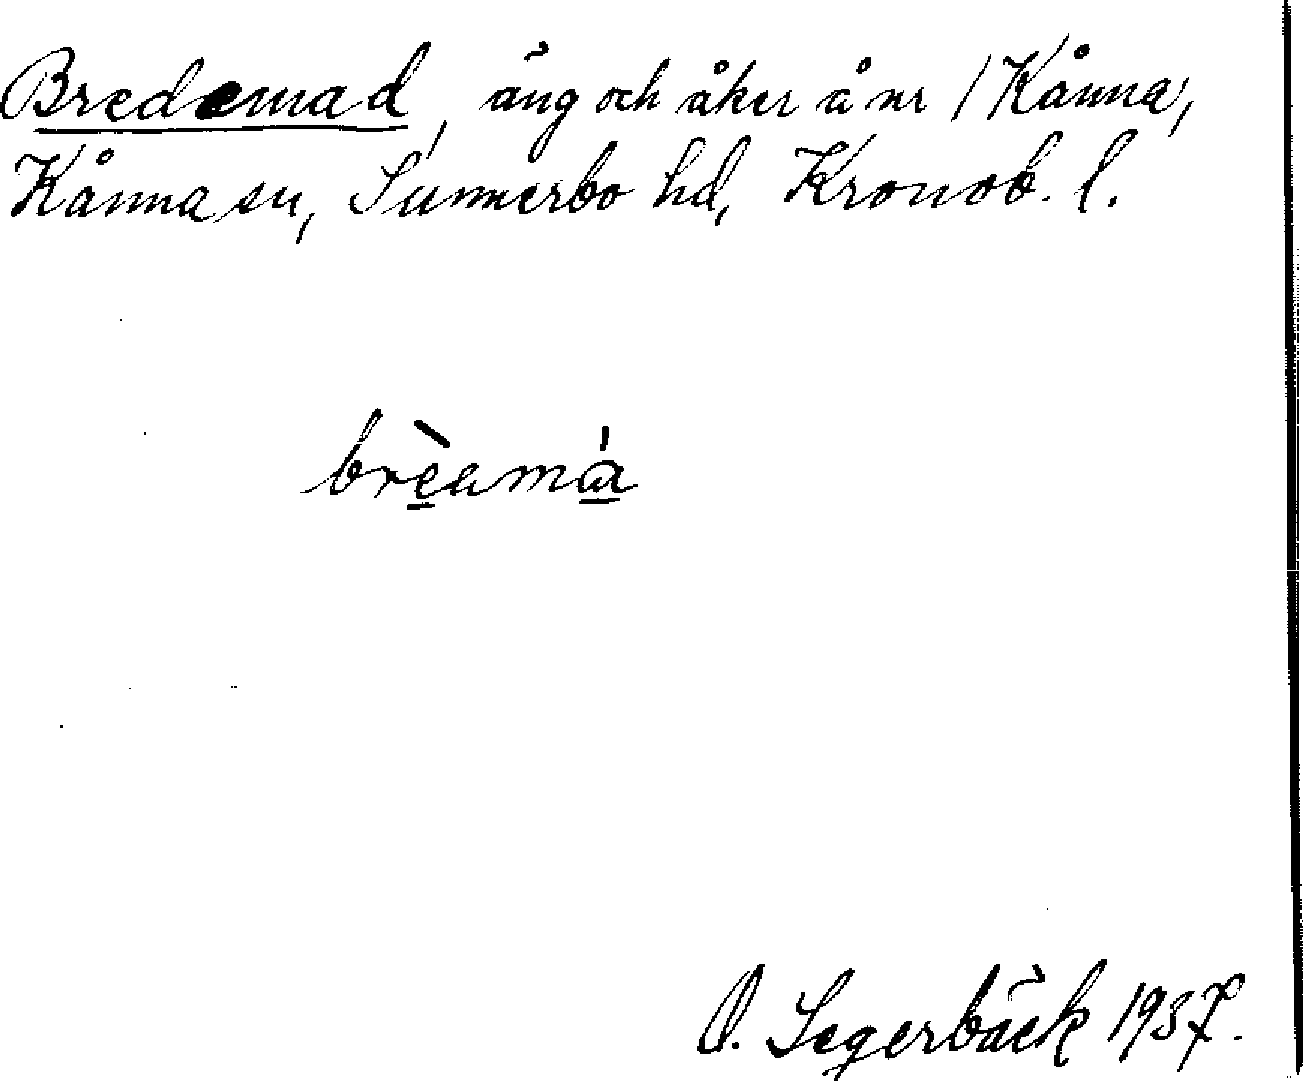 Bredemad, äng och åker å nr 1 Kånna,
Kånna sn, Sunnerbo hd, Kronob. l.
brèamá
O. Segerbäck 1937.